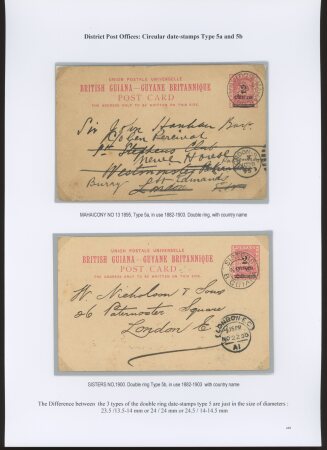 District Post Offices: Circular date-stamps Type 5a and 5b
UNION POSTALE UNIVERSELLE
BRITISH GUIANA—GUYANE BRITANNIQUE
POST CARD
THE ADDRESS ONLY TO BE WRITTEN ON THIS SIDE.
2
CENTS
Sir John Hanham Bart.
Percival
St Stephens Club
House
Westminster
Bury St Edmunds
London
MAHAICONY NO 13 1895, Type 5a, in use 1882-1903. Double ring, with country name
UNION POSTALE UNIVERSELLE
BRITISH GUIANA—GUYANE BRITANNIQUE
POST CARD
THE ADDRESS ONLY TO BE WRITTEN ON THIS SIDE.
2
CENTS
SISTERS
W. Nicholson & Sons
26 Paternoster Square
London E
LONDON E.C
A1
SISTERS NO.1900. Double ring Type 5b, in use 1882-1903 with country name
The Difference between the 3 types of the double ring date-stamps type 5 are just in the size of diameters :
23.5 /13.5-14 mm or 24 / 24 mm or 24.5 / 14-14.5 mm